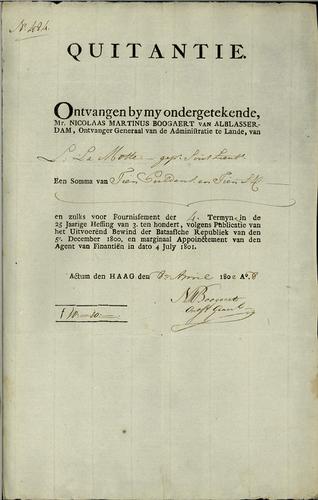 QUITANTIE.
Ontvangen by my ondergetekende,
Mr. NICOLAAS MARTINUS BOOGAERT VAN ALBLASSER-
DAM, Ontvanger Generaal van de Administratie te Lande, van
L. La Motte
Een Somma van Tien Guldens en Tien
en zulks voor Fournissement der 4. Termyn in de
25 Jaarige Heffing van 3. ten hondert, volgens Publicatie van
het Uitvoerend Bewind der Bataafsche Republiek van den
5e. December 1800, en marginaal Appoinctement van den
Agent van Finantiën in dato 4 July 1801.
Actum den HAAG den 1802
f 10.-10.-